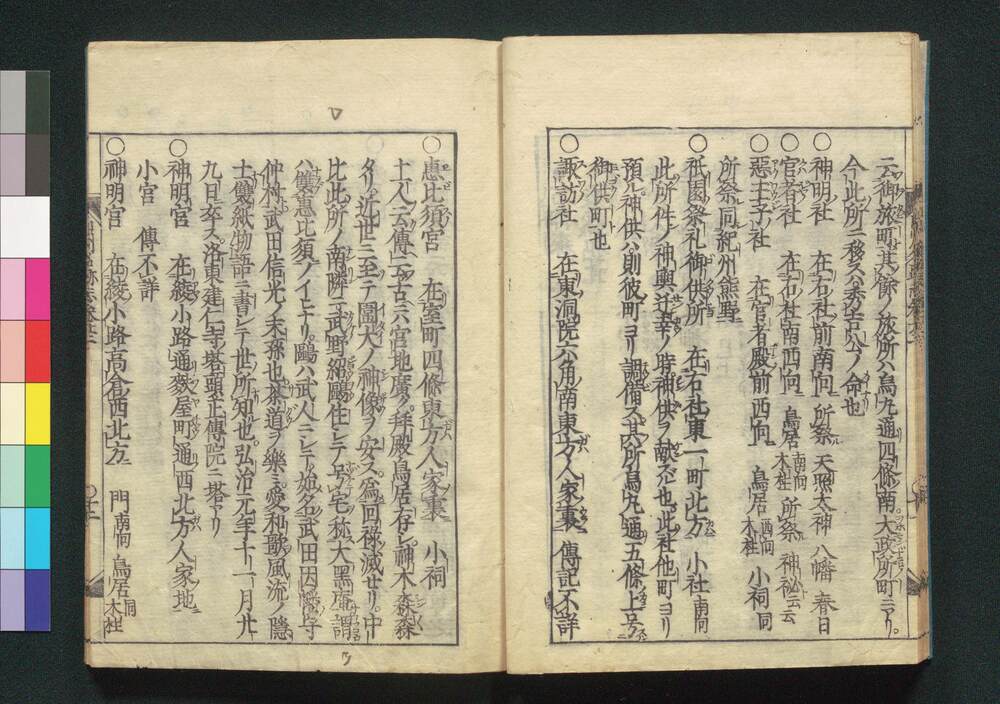 云御旅町其餘ノ旅所ハ烏丸通四條南大政所町ニアリ
今此所ニ移ス秀吉公ノ命也
○神明社 在右社前南向 所祭 天照太神 八幡 春日
○官者社 在右社南西向 鳥居南向木柱 所祭 神秘云云
○惡王子社 在官者殿前西向 鳥居西向木柱 小祠同
所祭同紀州熊野
○祇園祭礼御供所 在右社東一町北方 小社南向
此所件ノ神輿迁幸ノ時神供ヲ献ズ也此社他町ヨリ
預ル神供ハ則彼町ヨリ調備ス其所烏丸通五條上号
御供町也
○諏訪社 在東洞院六角南東方人家裏 傳記不詳
○惠比須宮 在室町四條東方人家裏 小祠
土人云傳云古ヘ宮地廣ク拜殿鳥居存シ神木森森
タリ近世ニ至テ圖大ノ神像ヲ安ス爲回禄滅セリ中
比此所ノ南隣ニ武野紹鷗住シテ号宅稱大黑庵謂
ハ雙惠比須ノイヒナリ鷗ハ武人ニシテ姓名武田因幡守
仲村武田信光ノ末孫也茶道ヲ樂ミ愛和歌風流ノ隱
士雙紙物語ニ書シテ世所知也弘治元年十一月廿
九日卒ス洛東建仁寺塔頭正傳院ニ塔アリ
○神明宮 在綾小路通麩屋町通西北方人家地
小宮 傳不詳
○神明宮 在綾小路高倉西北方 門南向 鳥居同木柱